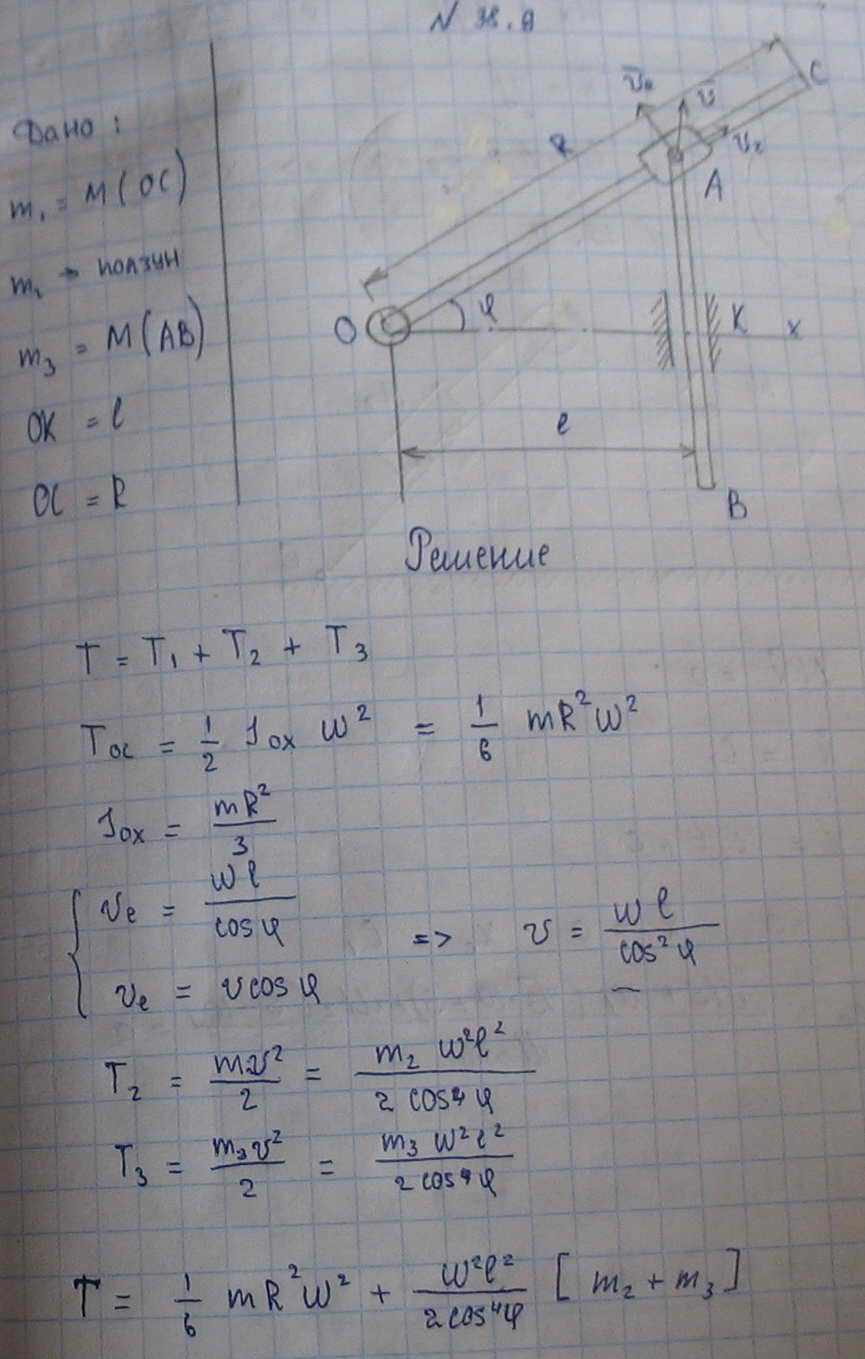 N 38.9
Дано:
m₁ = M(OC)
m₂ → ползун
m₃ = M(AB)
OK = l
OC = R
v̄ₑ
v̄
v̄ᵣ
C
R
A
O
φ
K
x
l
B
Решение
T = T₁ + T₂ + T₃
T_OC = 1/2 J_OX ω² = 1/6 mR²ω²
J_OX = mR²/3
{ vₑ = ωl/cosφ
vₑ = v cosφ => v = ωl/cos²φ
T₂ = m₂v²/2 = m₂ω²l²/2cos⁴φ
T₃ = m₃v²/2 = m₃ω²l²/2cos⁴φ
T = 1/6 mR²ω² + ω²l²/2cos⁴φ [m₂ + m₃]